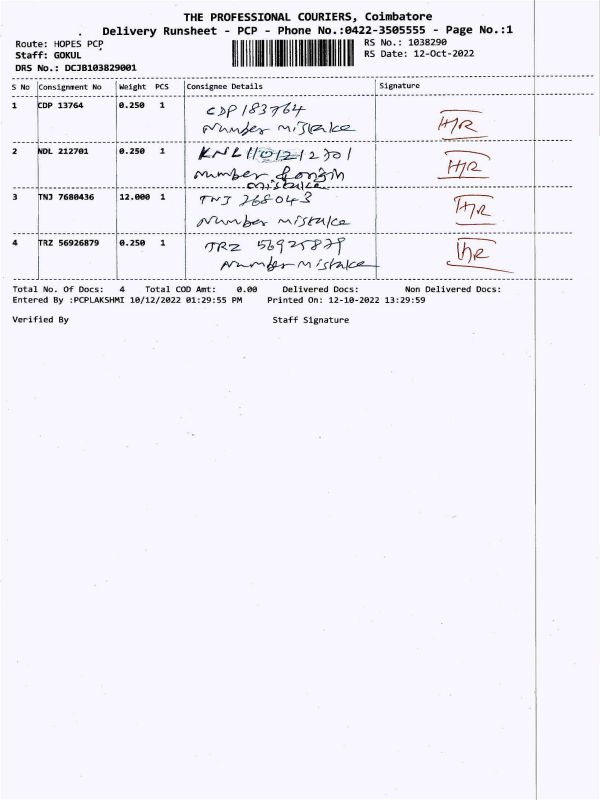 THE PROFESSIONAL COURIERS, Coimbatore
Delivery Runsheet - PCP - Phone No.:0422-3505555 - Page No.:1
Route: HOPES PCP
RS No.: 1038290
Staff: GOKUL
RS Date: 12-Oct-2022
DRS No.: DCJB103829001
S No Consignment No Weight PCS Consignee Details Signature
1 CDP 13764 0.250 1 CDP 183764
Number mistake
2 NDL 212701 0.250 1
number
mistake
3 TNJ 7680436 12.000 1 TNJ 768043
Number mistake
4 TRZ 56926879 0.250 1 TRZ 56925879
Number mistake
Total No. Of Docs: 4 Total COD Amt: 0.00 Delivered Docs: Non Delivered Docs:
Entered By :PCPLAKSHMI 10/12/2022 01:29:55 PM Printed On: 12-10-2022 13:29:59
Verified By Staff Signature